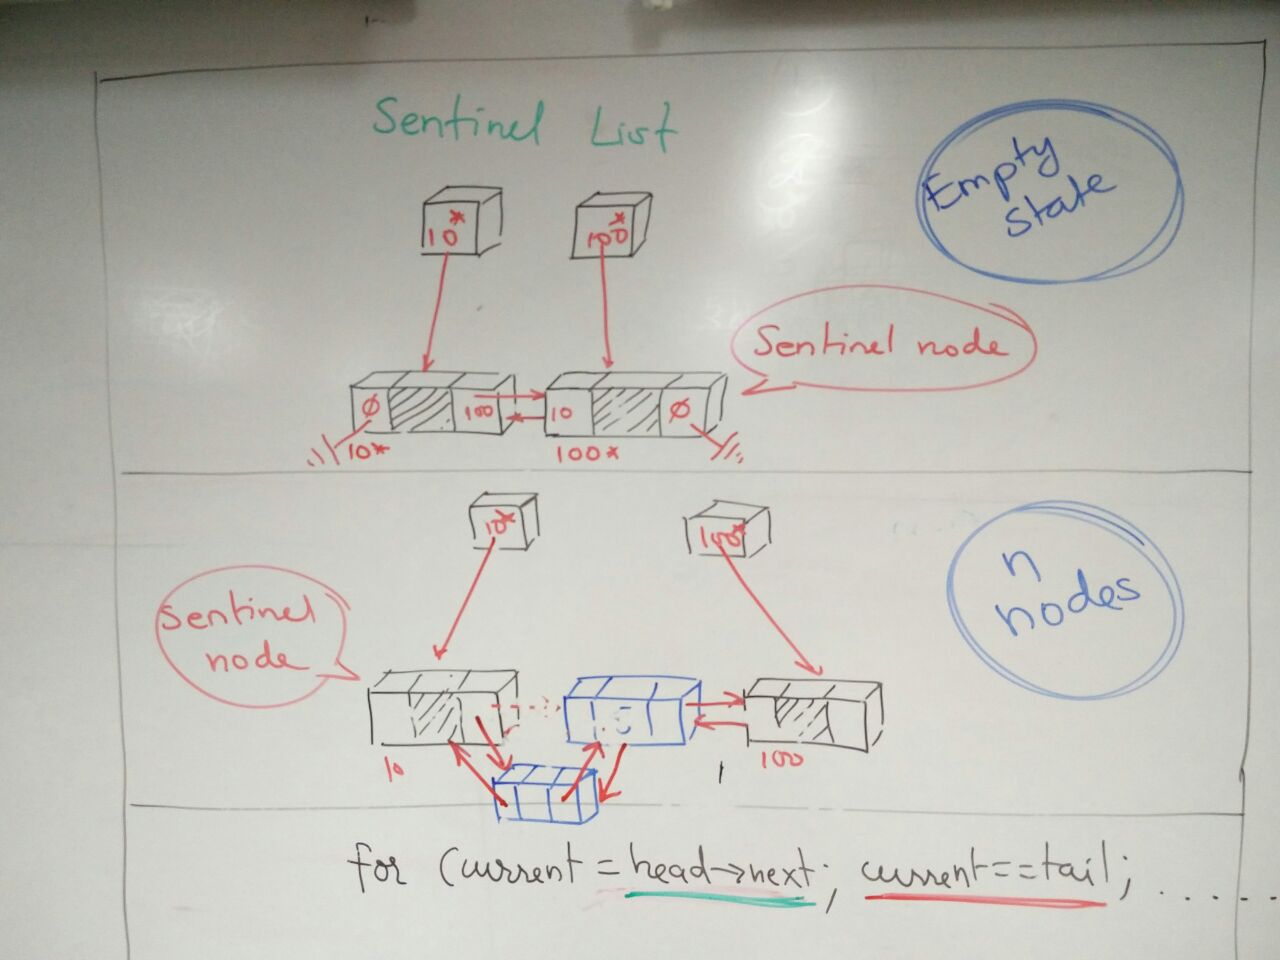 Sentinel List
Empty
state
10*
100*
Sentinel node
Ø
100
10
Ø
10*
100*
10*
100*
n
nodes
Sentinel
node
10
100
for (current = head->next; current==tail; .....